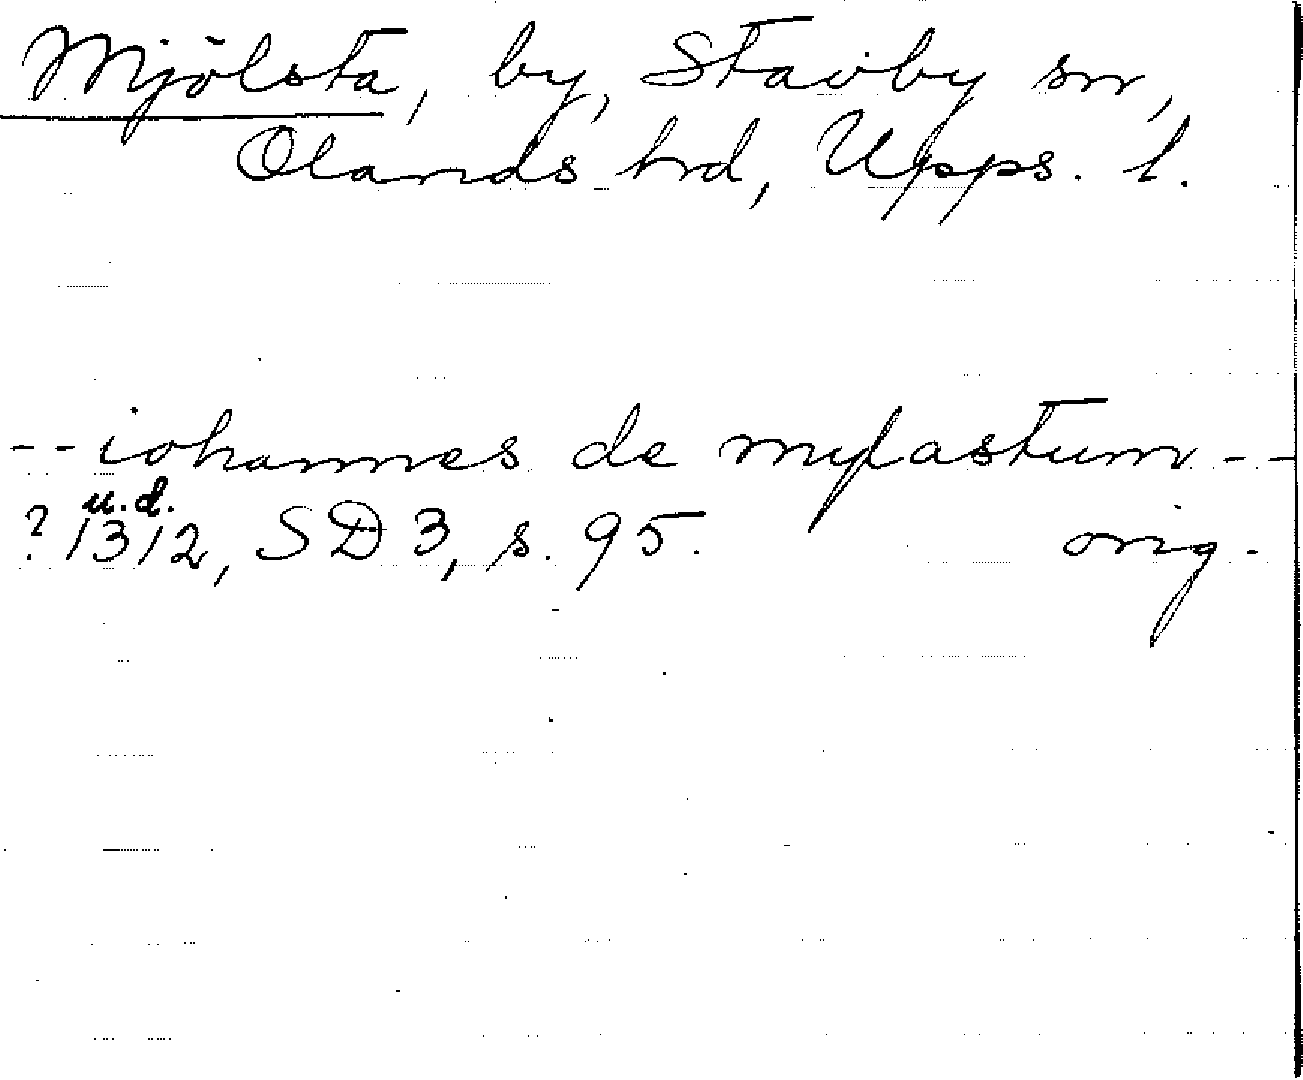 Mjölsta, by, Stavby sn,
Olands hd, Upps. l.
-- iohannes de mylastum --
u.d.
? 1312, SD 3, s. 95. orig.